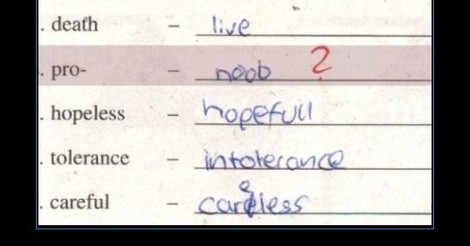 . death – live
. pro- – noob ?
. hopeless – hopefull
. tolerance – intolerance
. careful – careless